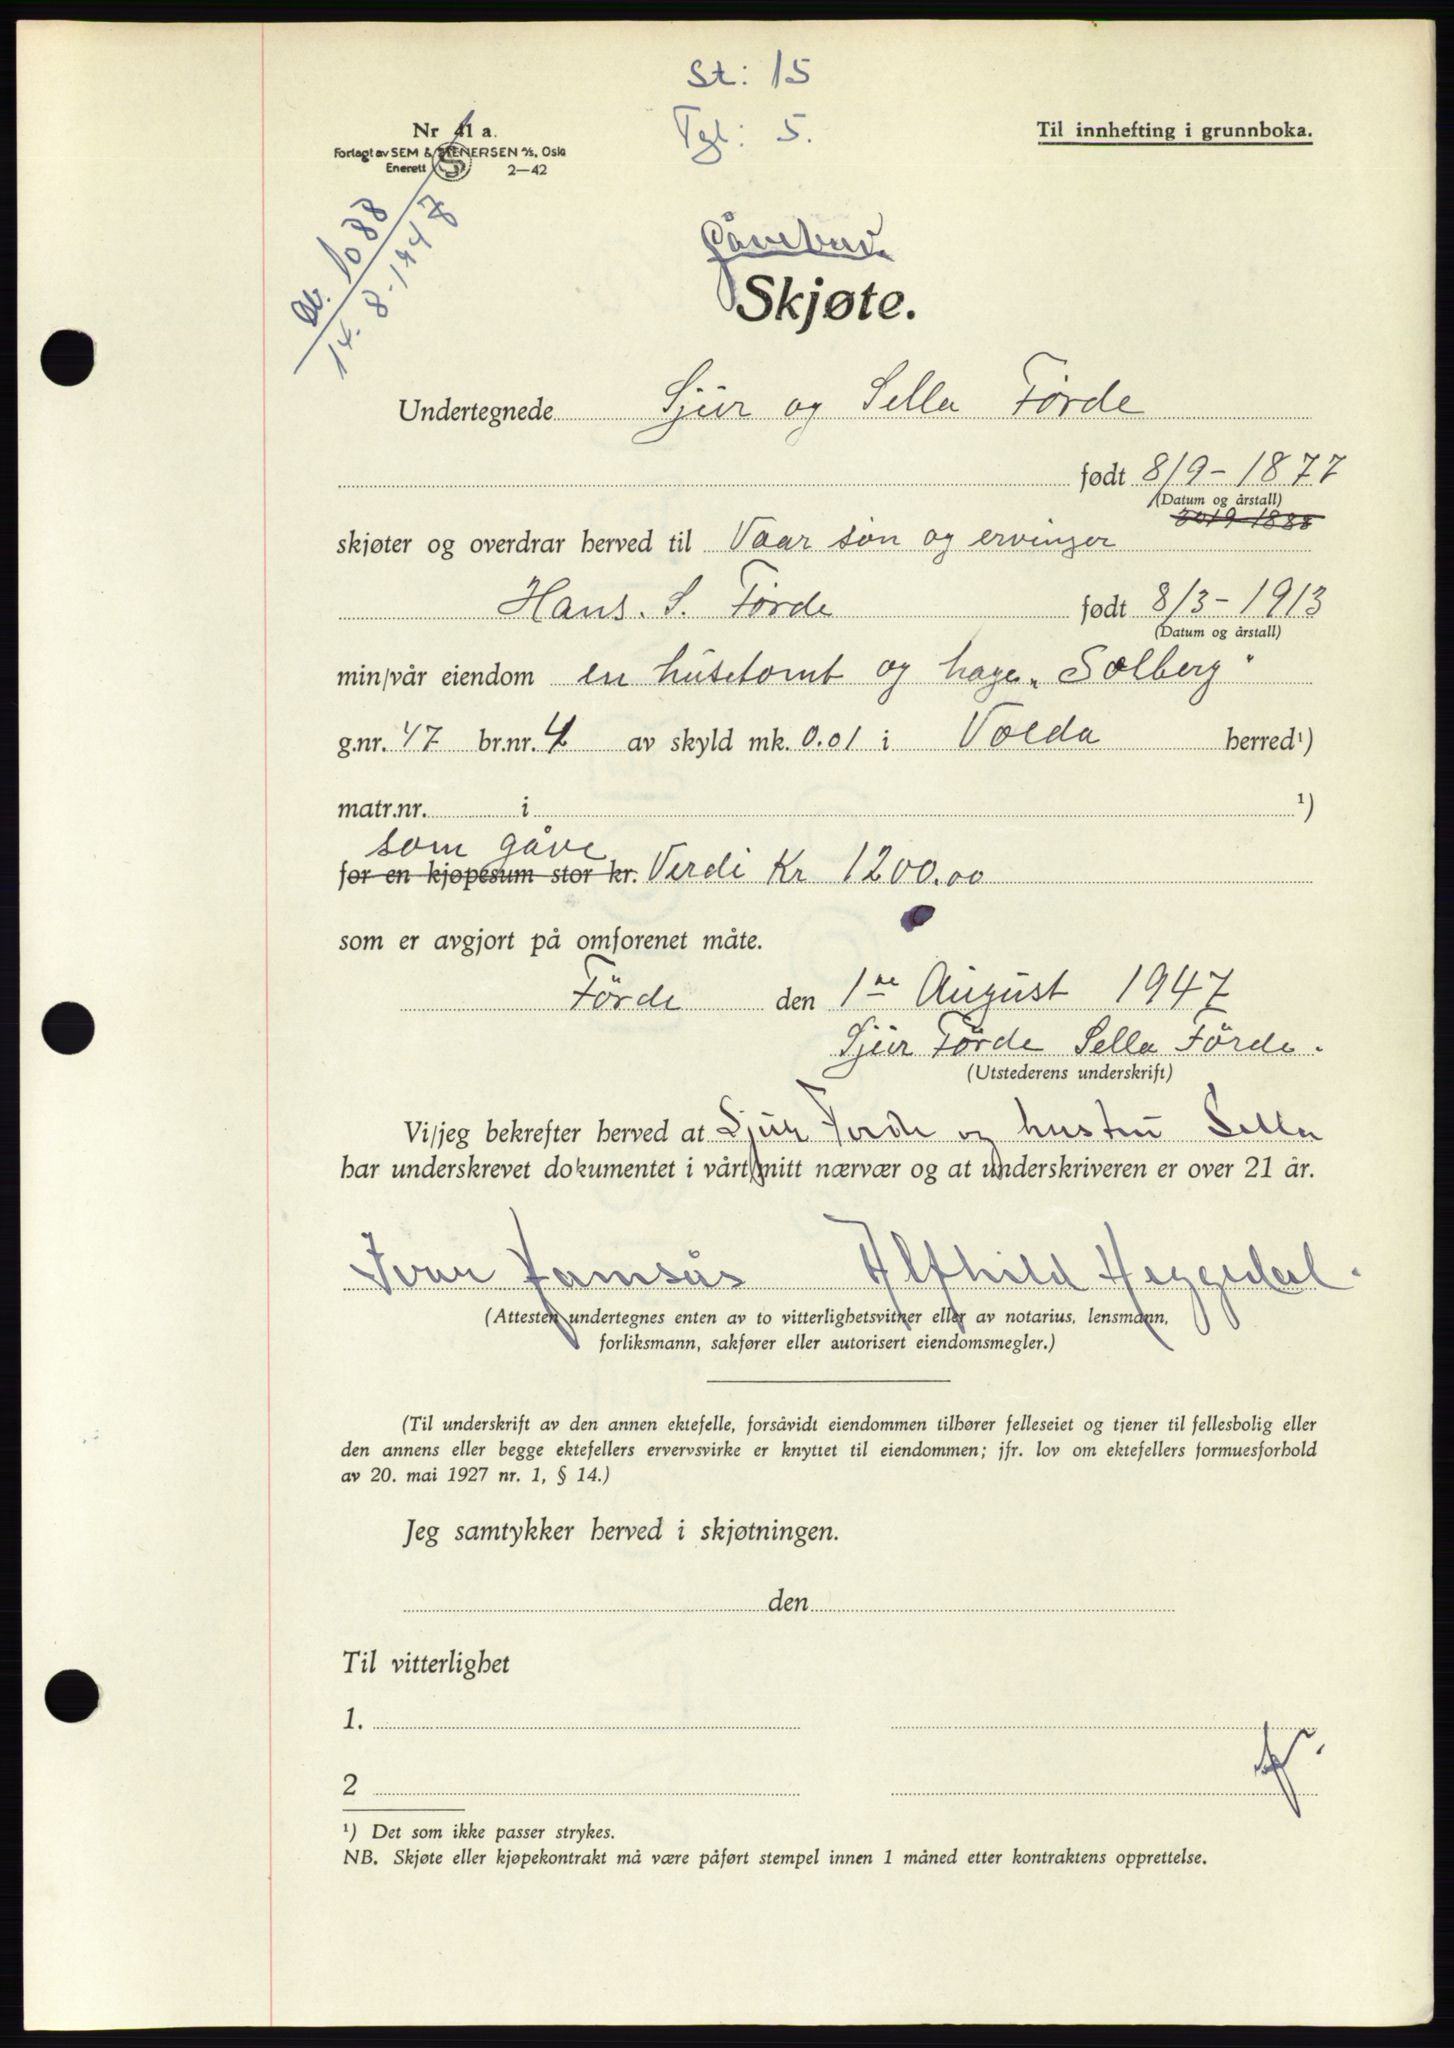 St: 15
Tgl: 5.
Nr 41 a.
Forlagt av SEM & STENERSEN A/S, Oslo
Enerett 2—42
Til innhefting i grunnboka.
Db. 1088
14. 8-1947
Gåvebrev.
Skjøte.
Undertegnede Sjur og Sella Förde
født 8/9-1877
(Datum og årstall)
skjøter og overdrar herved til Vaar søn og ervinger
Hans. S. Förde født 8/3-1913
(Datum og årstall)
min/vår eiendom en hüsetomt og hage „Solberg"
g.nr. 47 br.nr. 4 av skyld mk. 0.01 i Volda herred¹)
matr.nr. i ¹)
som gåve
for en kjøpesum stor kr. Verdi Kr 1200.00
som er avgjort på omforenet måte.
Förde den 1ne August 1947
Sjur Förde Sella Förde.
(Utstederens underskrift)
Vi/jeg bekrefter herved at Sjur Förde og hustru Sella
har underskrevet dokumentet i vårt/mitt nærvær og at underskriveren er over 21 år.
Ivar Jamsås Alfhild Heggedal.
(Attesten undertegnes enten av to vitterlighetsvitner eller av notarius, lensmann,
forliksmann, sakfører eller autorisert eiendomsmegler.)
(Til underskrift av den annen ektefelle, forsåvidt eiendommen tilhører felleseiet og tjener til fellesbolig eller
den annens eller begge ektefellers ervervsvirke er knyttet til eiendommen; jfr. lov om ektefellers formuesforhold
av 20. mai 1927 nr. 1, § 14.)
Jeg samtykker herved i skjøtningen.
den
Til vitterlighet
1.
2
¹) Det som ikke passer strykes.
NB. Skjøte eller kjøpekontrakt må være påført stempel innen 1 måned etter kontraktens opprettelse.